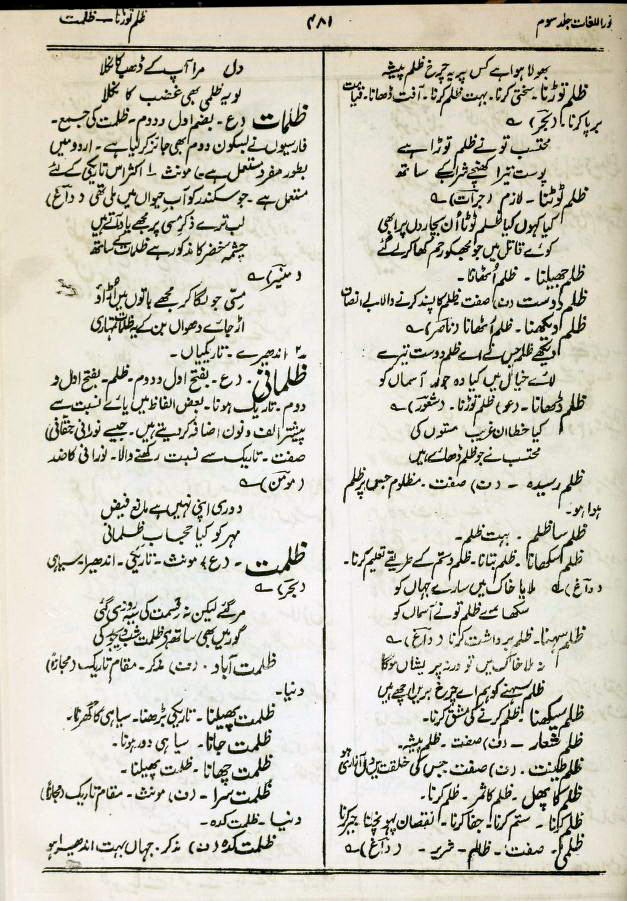 نور اللغات جلد سوم
۴۸۱
ظلم توڑنا — ظلمت
بھولا ہوا ہے کس پہ یہ چرخ ظلم پیشہ
ظلم توڑنا۔ سختی کرنا۔ بہت ظلم کرنا۔ آفت ڈھانا۔ قیامت
برپا کرنا۔ (بحر) ؎
محتسب تو نے ظلم توڑا ہے
پوست تیرا کھنچے شراب کے ساتھ
ظلم ٹوٹنا۔ لازم (جرأت) ؎
کیا کہوں کیا ظلم ٹوٹا اُن بیچار دل پر ابھی
کوئے قاتل میں جو مجھ کو رحم کھا کر لے گئے
ظلم جھیلنا۔ ظلم اُٹھانا۔
ظلم دوست (ف) صفت۔ ظلم کا پسند کرنے والا۔ بے انصاف
ظلم دیکھنا۔ ظلم اُٹھانا (ناصر) ؎
دیکھے ظلم جس نے اے ظلم دوست تیرے
لائے خیال میں کیا وہ جور آسماں کو
ظلم ڈھانا۔ (عو) ظلم توڑنا۔ (شعور) ؎
کیا خطا ان غریب مستوں کی
محتسب نے جو ظلم ڈھائے ہیں
ظلم رسیدہ — (ف) صفت۔ مظلوم جس پر ظلم
ہوا ہو۔
ظلم سا ظلم۔ بہت ظلم۔
ظلم سکھانا۔ ظلم بتانا۔ ظلم و ستم کے طریقے تعلیم کرنا۔
(داغ) ؎ ملایا خاک میں سارے جہاں کو
سکھائے ظلم تو نے آسماں کو
ظلم سہنا۔ ظلم برداشت کرنا (داغ) ؎
نہ ملا خاک میں تو ورنہ پریشاں ہوگا
ظلم سہنے کو ہم اے چرخ بریں اچھے ہیں
ظلم سیکھنا۔ ظلم کرنے کی مشق کرنا۔
ظلم شعار — (ف) صفت۔ ظلم پیشہ۔
ظلم طینت۔ (ف) صفت جس کی خلقت میں دل آزاری ہو
ظلم کا پھل۔ ظلم کا ثمر۔ ظلم کرنا۔
ظلم کرنا۔ ستم کرنا۔ جفا کرنا۔ نقصان پہونچانا جبر کرنا
ظلمی۔ صفت۔ ظالم۔ شریر۔ (داغ) ؎
دل مرا آپ کے ڈھب کا نکلا
لو یہ ظلمی بھی غضب کا نکلا
ظلمات (ع۔ بضم اول و دوم۔ ظلمت کی جمع۔
فارسیوں نے بسکون دوم بھی جائز کر لیا ہے۔ اردو میں
بطور مفرد مستعمل ہے) مونث ۱ اکثر اس تاریکی کے لئے
مستعمل ہے۔ جو سکندر کو آب حیواں میں ملی تھی (داغ)
لب ترے ذکر مسی پر مجھے یاد آتے ہیں
چشمۂ خضر کا مذکور ہے ظلمات کے ساتھ
(منیر) ؎
مسّی جو لگا کر مجھے باتوں میں اُڑاؤ
اڑ جائے دھواں بن کے یہ ظلمات تمہاری
۲ اندھیرے۔ تاریکیاں۔
ظلمانی۔ (ع۔ بفتح اول و دوم۔ ظلم۔ بفتح اول و
دوم۔ تاریک ہونا۔ بعض الفاظ میں یائے نسبت سے
پیشتر الف و نون اضافہ کر دیتے ہیں۔ جیسے نورانی حقانی)
صفت۔ تاریک سے نسبت رکھنے والا۔ نورانی کا ضد
(مومن) ؎
دوری اپنی نہیں ہے مانع فیض
مہر کو کیا حجاب ظلمانی
ظلمت۔ (ع) مونث۔ تاریکی۔ اندھیرا۔ سیاہی
(بحر) ؎
مر گئے لیکن نہ قسمت کی سیہ روزی گئی
گور میں بھی ساتھ ہے ظلمت شب دیجور کی
ظلمت آباد۔ (ف) مذکر۔ مقام تاریک (مجازاً)
دنیا۔
ظلمت پھیلنا۔ تاریکی بڑھنا۔ سیاہی کا گھرنا۔
ظلمت جانا۔ سیاہی دور ہونا۔
ظلمت چھانا۔ ظلمت پھیلنا۔
ظلمت سرا — (ف) مونث۔ مقام تاریک (مجازاً)
دنیا۔ ظلمت کدہ۔
ظلمت کدہ (ف) مذکر۔ جہاں بہت اندھیرا ہو